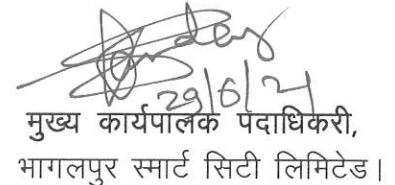 29/6/21
मुख्य कार्यपालक पदाधिकरी,
भागलपुर स्मार्ट सिटी लिमिटेड।